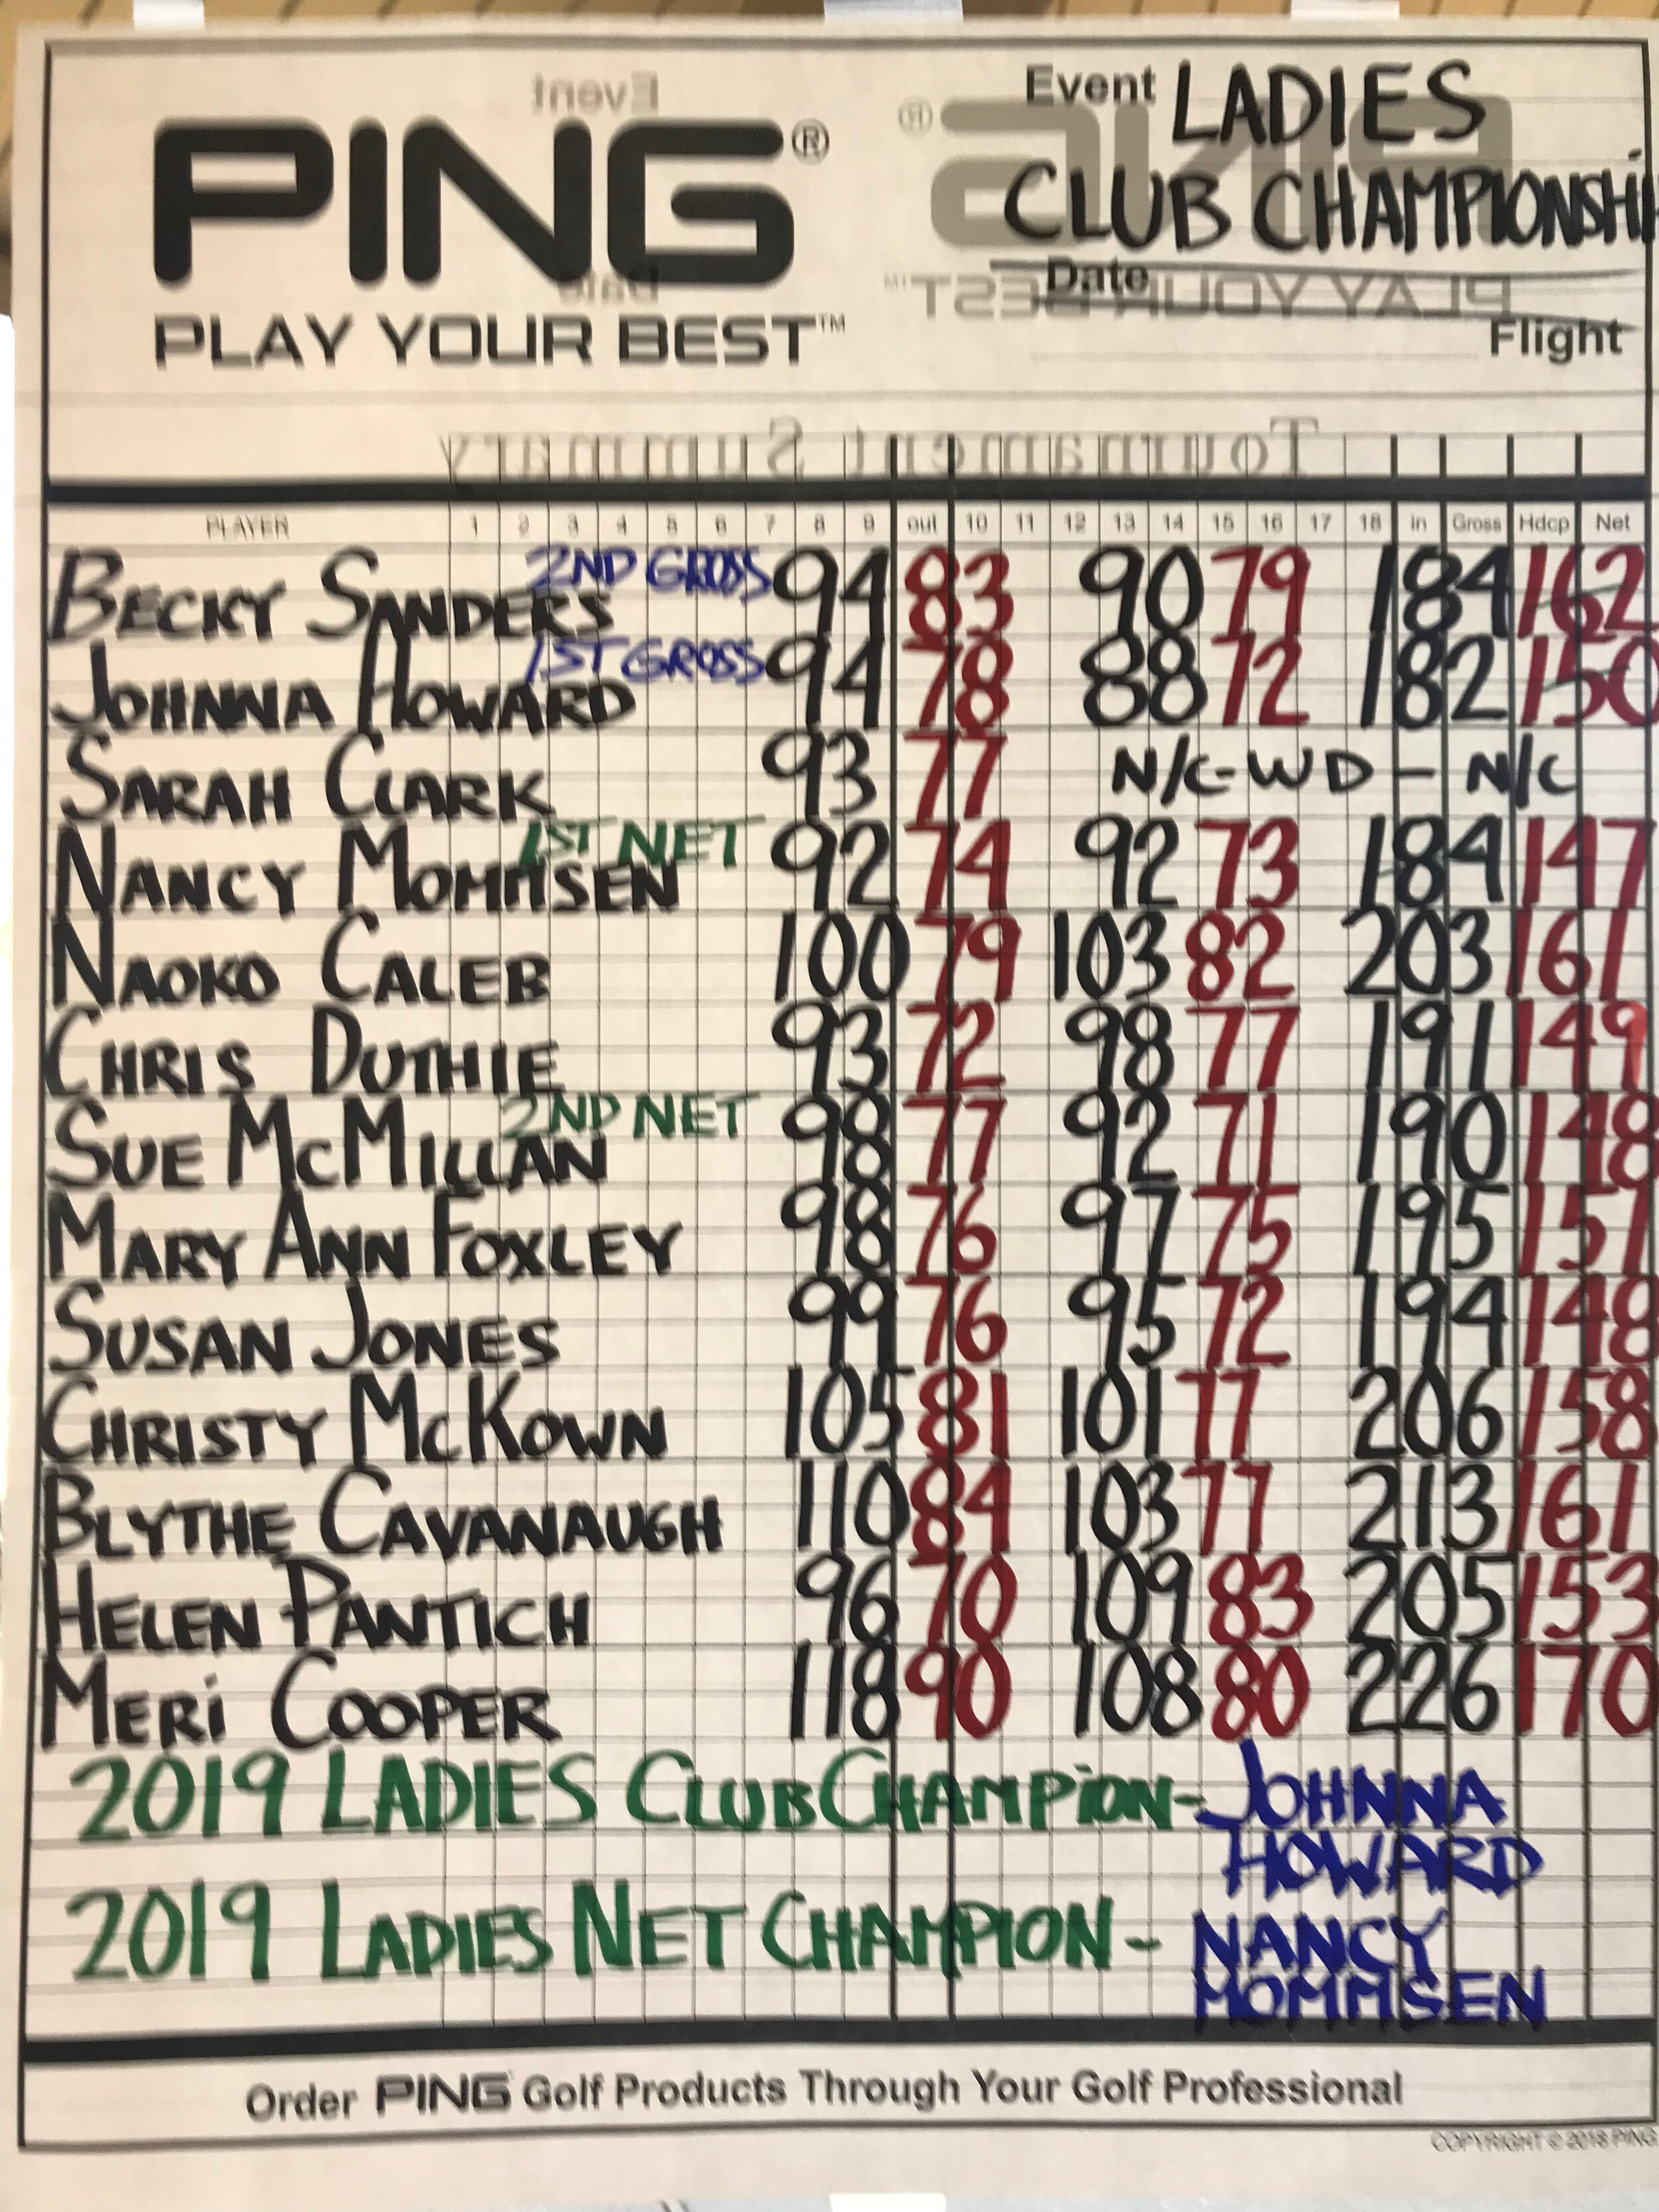 PING®
PLAY YOUR BEST™
Event LADIES
CLUB CHAMPIONSHI
Date
Flight
PLAYER 1 2 3 4 5 6 7 8 9 out 10 11 12 13 14 15 16 17 18 in Gross Hdcp Net
2ND GROSS
BECKY SANDERS 94 83 90 79 184 162
1ST GROSS
JOHNNA HOWARD 94 78 88 72 182 150
SARAH CLARK 93 77 N/C-WD - N/C
1ST NET
NANCY MOMMSEN 92 74 92 73 184 147
NAOKO CALEB 100 79 103 82 203 161
CHRIS DUTHIE 93 72 98 77 191 149
2ND NET
SUE MCMILLAN 98 77 92 71 190 148
MARY ANN FOXLEY 98 76 97 75 195 151
SUSAN JONES 99 76 95 72 194 148
CHRISTY MCKOWN 105 81 101 77 206 158
BLYTHE CAVANAUGH 110 84 103 77 213 161
HELEN PANTICH 96 70 109 83 205 153
MERi COOPER 118 90 108 80 226 170
2019 LADIES CLUB CHAMPiON- JOHNNA
HOWARD
2019 LADIES NET CHAMPION - NANCY
MOMMSEN
Order PING Golf Products Through Your Golf Professional
COPYRIGHT © 2018 PING